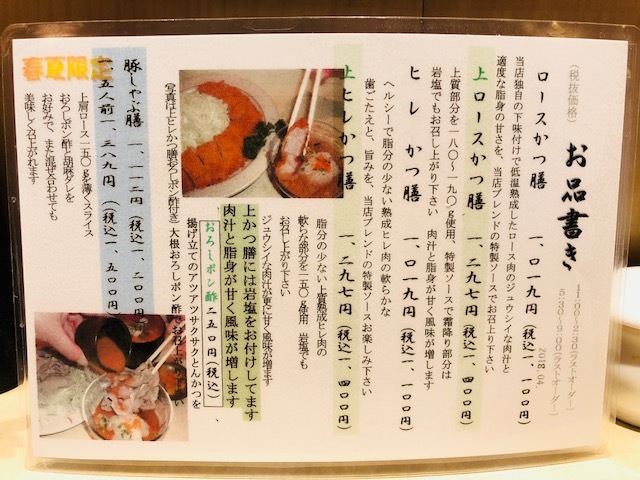 お品書き
(税抜価格)
11:00~2:30(ラストオーダー)
5:30~9:00(ラストオーダー)
2018.04.
ロースかつ膳 一、〇一九円(税込一、一〇〇円)
当店独自の下味付けで低温熟成したロース肉のジュウシイな肉汁と
適度な脂身の甘さを、当店ブレンドの特製ソースでお召上り下さい
上ロースかつ膳 一、二九七円(税込一、四〇〇円)
上質部分を一八〇~一九〇g使用、特製ソースで霜降り部分は
岩塩でもお召し上がり下さい 肉汁と脂身が甘く風味が増します
ヒレかつ膳 一、〇一九円(税込一、一〇〇円)
ヘルシーで脂分の少ない熟成ヒレ肉の軟らかな
歯ごたえと、旨みを、当店ブレンドの特製ソースお楽しみ下さい
上ヒレかつ膳 一、二九七円(税込一、四〇〇円)
脂分の少ない上質熟成ヒレ肉の
軟らな部分を一五〇g使用 岩塩でも
お召し上がり下さい
ジュウシイな肉汁が更に甘く風味が増します
上かつ膳には岩塩をお付けしてます
肉汁と脂身が甘く風味が増します
おろしポン酢 二五〇円(税込)
揚げ立てのアツアツサクサクとんかつを、
大根おろしポン酢でお召上り下さい
(写真は上ヒレかつ膳おろしポン酢付き)
春夏限定
豚しゃぶ膳 一、一一二円(税込一、二〇〇円)
一、五人前 一、三八九円(税込一、五〇〇円)
上肩ロース一五〇gを薄くスライス
おろしポン酢と胡麻ダレを
お好みで、また混ぜ合わせても
美味しく召上がれます